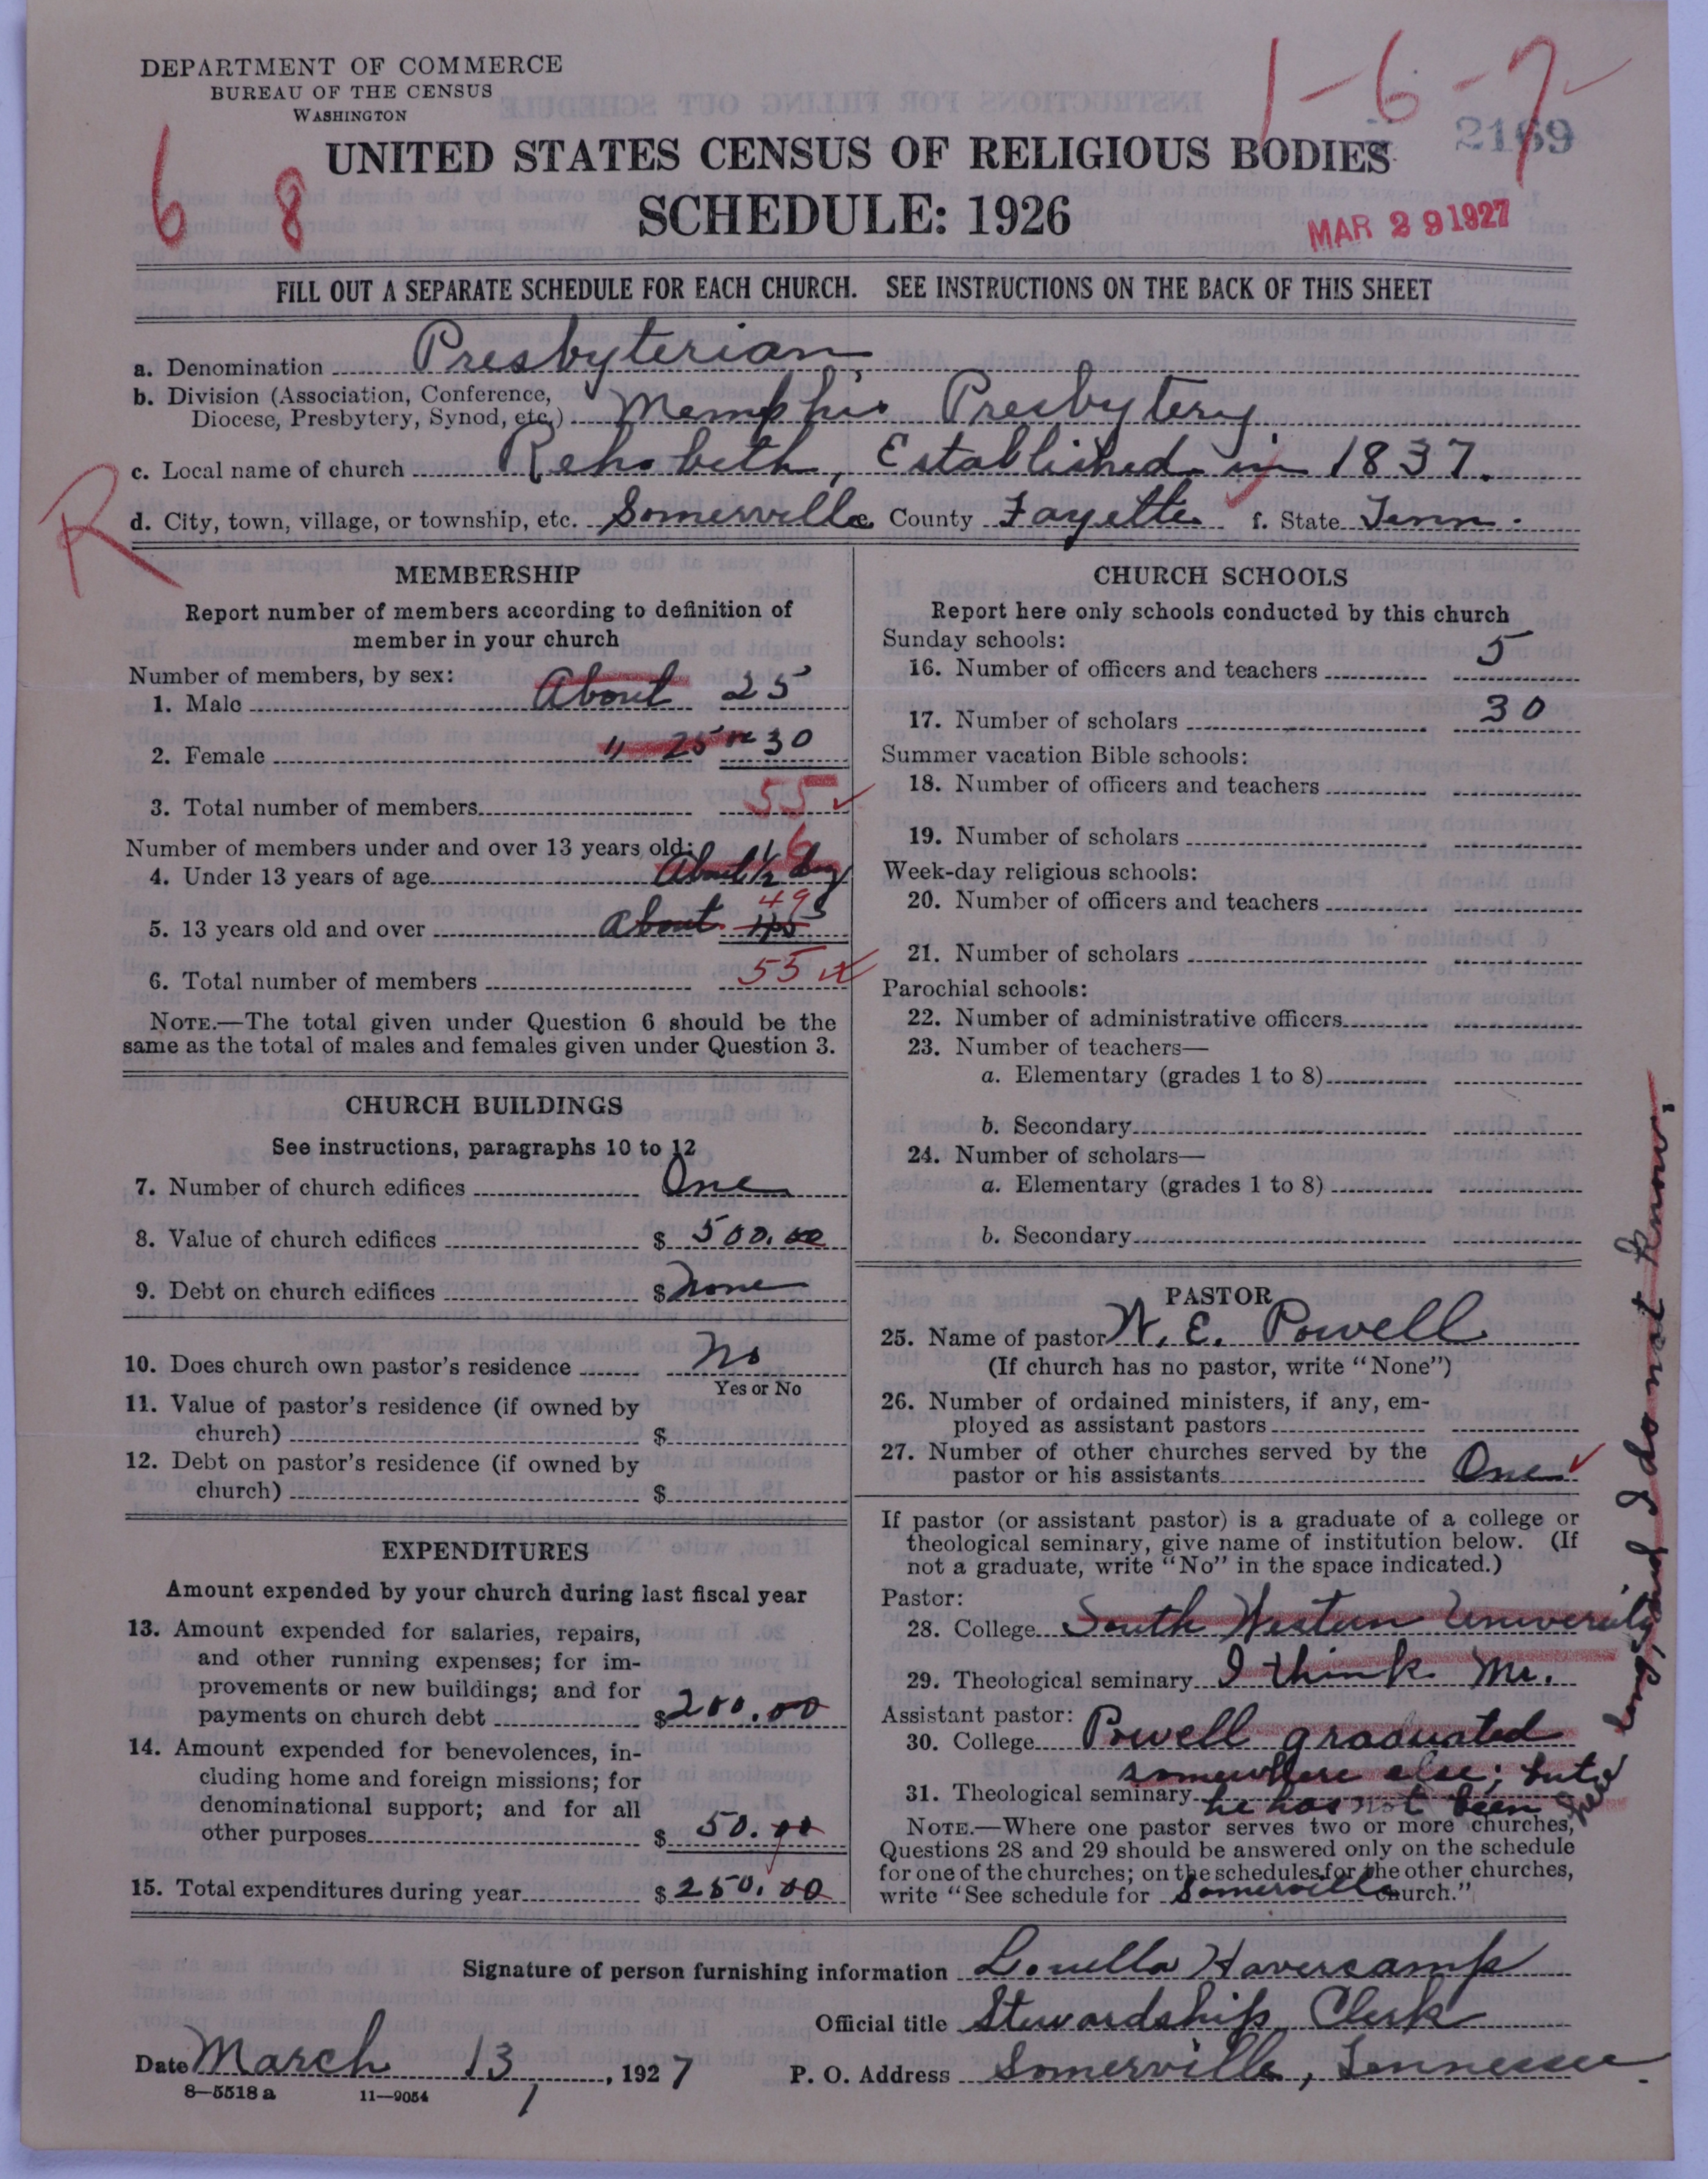 DEPARTMENT OF COMMERCE
BUREAU OF THE CENSUS
WASHINGTON
1-6-7
2169
UNITED STATES CENSUS OF RELIGIOUS BODIES
6 8
SCHEDULE: 1926
MAR 29 1927
FILL OUT A SEPARATE SCHEDULE FOR EACH CHURCH. SEE INSTRUCTIONS ON THE BACK OF THIS SHEET
a. Denomination Presbyterian
b. Division (Association, Conference, Diocese, Presbytery, Synod, etc.) Memphis Presbytery
c. Local name of church Rehobeth, Established in 1837.
R
d. City, town, village, or township, etc. Somerville County Fayette f. State Tenn.
MEMBERSHIP
Report number of members according to definition of
member in your church
Number of members, by sex:
1. Male About 25
2. Female " 25 or 30
3. Total number of members 55
Number of members under and over 13 years old:
4. Under 13 years of age About 1/2 doz 6
5. 13 years old and over About 45 49
6. Total number of members 55
NOTE.—The total given under Question 6 should be the
same as the total of males and females given under Question 3.
CHURCH BUILDINGS
See instructions, paragraphs 10 to 12
7. Number of church edifices One
8. Value of church edifices $ 500.00
9. Debt on church edifices $ none
10. Does church own pastor's residence No
Yes or No
11. Value of pastor's residence (if owned by
church) $
12. Debt on pastor's residence (if owned by
church) $
EXPENDITURES
Amount expended by your church during last fiscal year
13. Amount expended for salaries, repairs,
and other running expenses; for im-
provements or new buildings; and for
payments on church debt $ 200.00
14. Amount expended for benevolences, in-
cluding home and foreign missions; for
denominational support; and for all
other purposes $ 50.00
15. Total expenditures during year $ 250.00
CHURCH SCHOOLS
Report here only schools conducted by this church
Sunday schools:
16. Number of officers and teachers 5
17. Number of scholars 30
Summer vacation Bible schools:
18. Number of officers and teachers
19. Number of scholars
Week-day religious schools:
20. Number of officers and teachers
21. Number of scholars
Parochial schools:
22. Number of administrative officers
23. Number of teachers—
a. Elementary (grades 1 to 8)
b. Secondary
24. Number of scholars—
a. Elementary (grades 1 to 8)
b. Secondary
PASTOR
25. Name of pastor W. E. Powell
(If church has no pastor, write "None")
26. Number of ordained ministers, if any, em-
ployed as assistant pastors
27. Number of other churches served by the
pastor or his assistants One
If pastor (or assistant pastor) is a graduate of a college or
theological seminary, give name of institution below. (If
not a graduate, write "No" in the space indicated.)
Pastor:
28. College South Western University
29. Theological seminary I think Mr.
Assistant pastor:
30. College Powell graduated
somewhere else; but
31. Theological seminary he has not been
here long, and I do not know.
NOTE.—Where one pastor serves two or more churches,
Questions 28 and 29 should be answered only on the schedule
for one of the churches; on the schedules for the other churches,
write "See schedule for Somerville church."
Signature of person furnishing information Louella Havercamp
Official title Stewardship Clerk
Date March 13, 1927 P. O. Address Somerville, Tennessee.
8—5518 a 11—9054